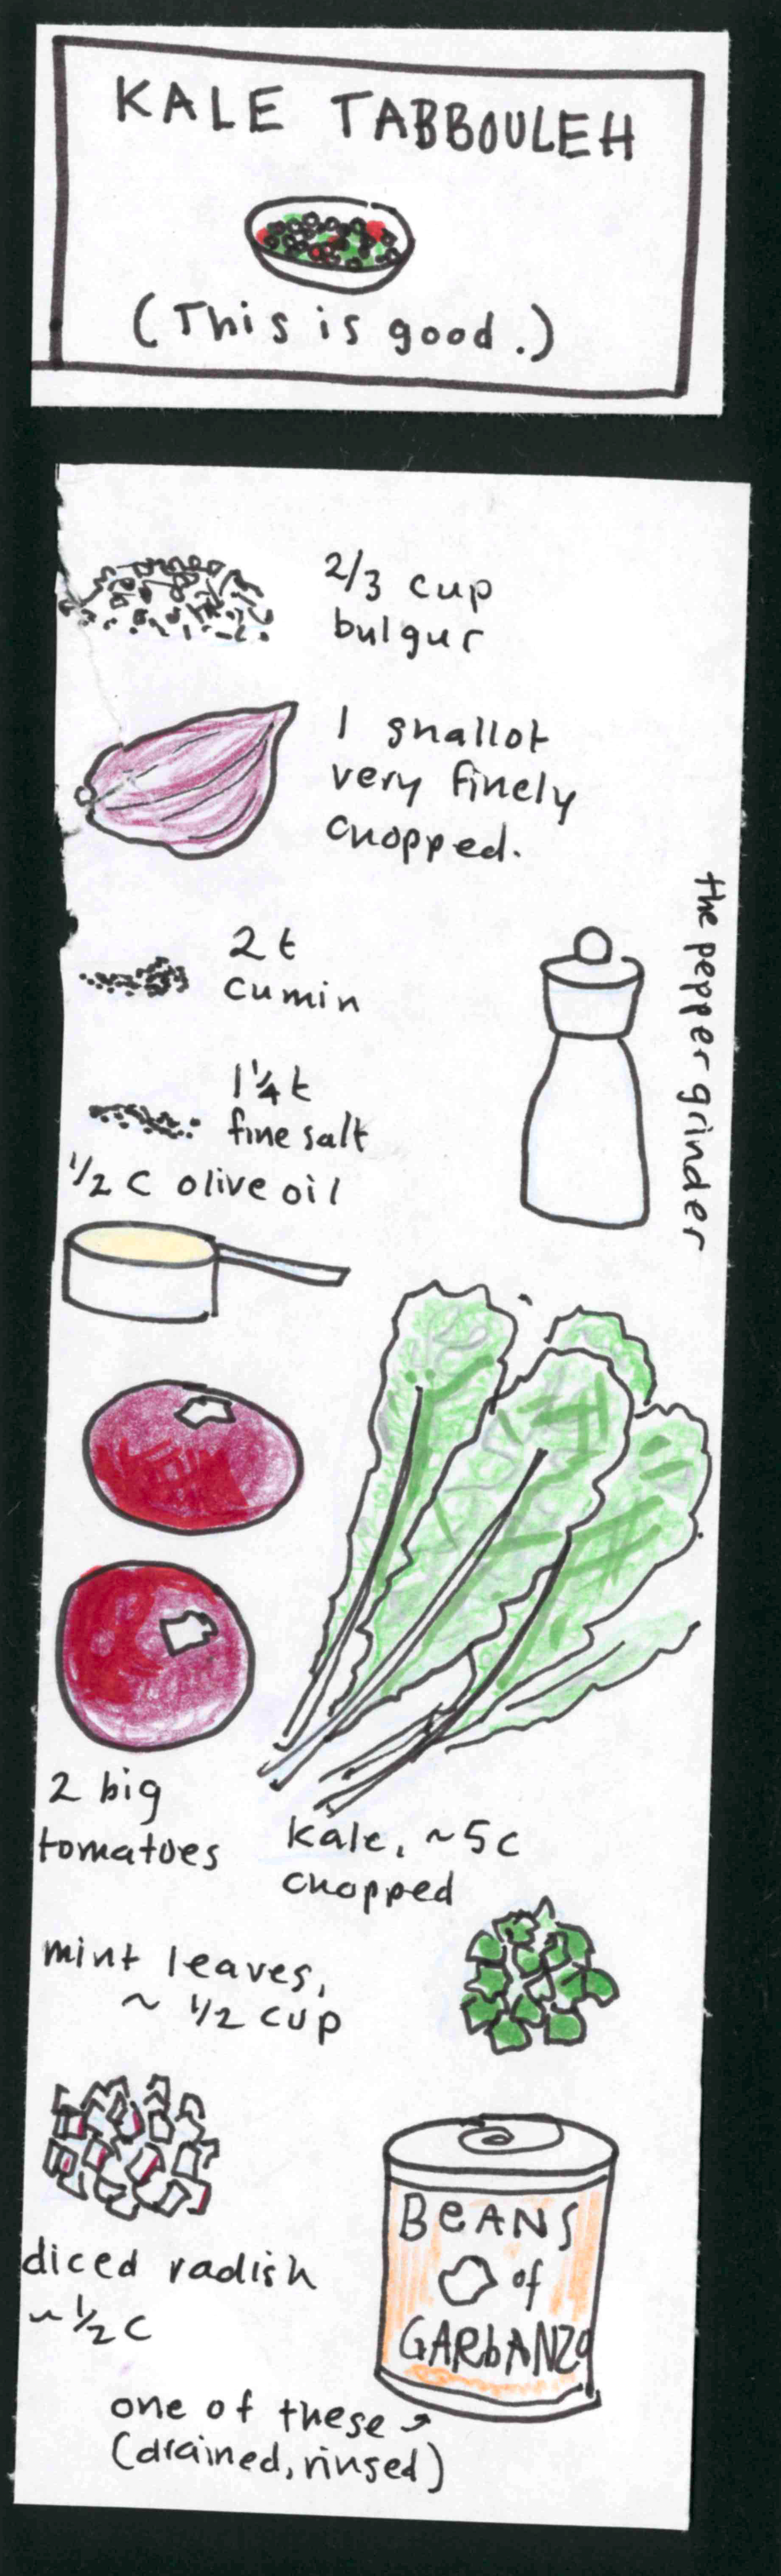 KALE TABBOULEH
(This is good.)
2/3 cup
bulgur
1 shallot
very finely
chopped.
2 t
cumin
the pepper grinder
1 1/4 t
fine salt
1/2 C olive oil
2 big
tomatoes
kale, ~5c
chopped
mint leaves,
~ 1/2 cup
diced radish
~ 1/2 c
BEANS
of
GARbANZO
one of these
(drained, rinsed)